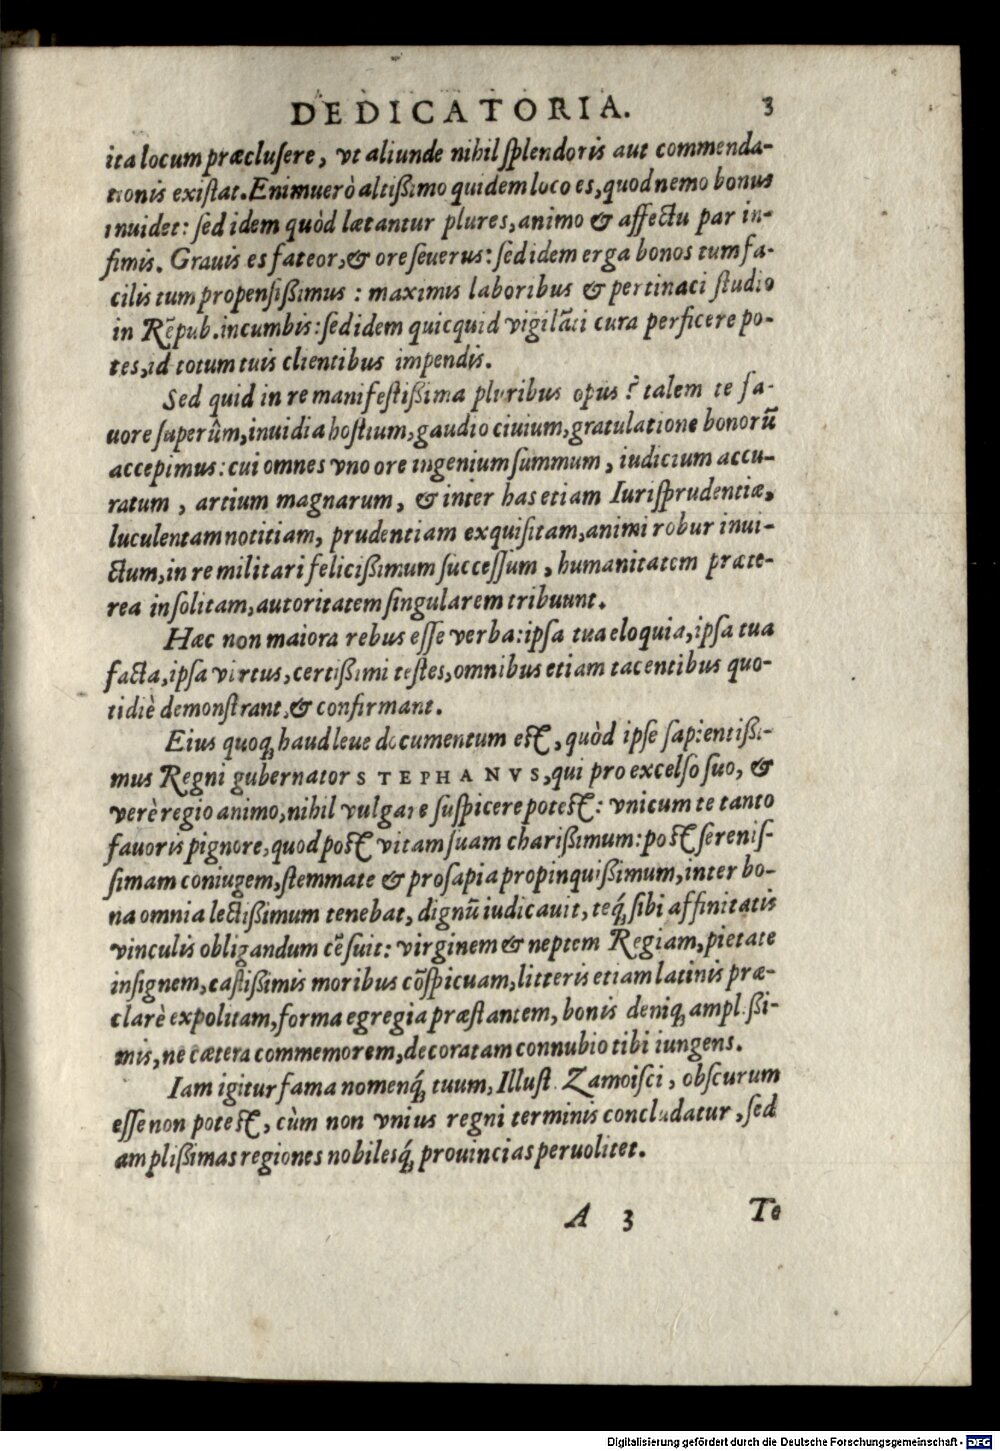 DEDICATORIA. 3
ita locum præclusere, vt aliunde nihil splendoris aut commenda-
tionis existat. Enimuerò altißimo quidem loco es, quod nemo bonus
inuidet: sed idem quòd lætantur plures, animo & affectu par in-
fimis. Grauis es fateor, & ore seuerus: sed idem erga bonos tum fa-
cilis tum propensißimus: maximis laboribus & pertinaci studio
in Rēpub. incumbis: sed idem quicquid vigilāti cura perficere po-
tes, id totum tuis clientibus impendis.
Sed quid in re manifestißima pluribus opus? talem te fa-
uore superûm, inuidia hostium, gaudio ciuium, gratulatione bonorū
accepimus: cui omnes vno ore ingenium summum, iudicium accu-
ratum, artium magnarum, & inter has etiam Iurisprudentiæ,
luculentam notitiam, prudentiam exquisitam, animi robur inui-
ctum, in re militari felicißimum successum, humanitatem præte-
rea insolitam, autoritatem singularem tribuunt.
Hæc non maiora rebus esse verba: ipsa tua eloquia, ipsa tua
facta, ipsa virtus, certißimi testes, omnibus etiam tacentibus quo-
tidiè demonstrant, & confirmant.
Eius quoq; haud leue documentum est, quòd ipse sapientißi-
mus Regni gubernator STEPHANVS, qui pro excelso suo, &
verè regio animo, nihil vulgare suspicere potest: vnicum te tanto
fauoris pignore, quod post vitam suam charißimum: post serenis-
simam coniugem, stemmate & prosapia propinquißimum, inter bo-
na omnia lectißimum tenebat, dignū iudicauit, teq́; sibi affinitatis
vinculis obligandum cēsuit: virginem & neptem Regiam, pietate
insignem, castißimis moribus cōspicuam, litteris etiam latinis præ-
clarè expolitam, forma egregia præstantem, bonis deniq; amplißi-
mis, ne cætera commemorem, decoratam connubio tibi iungens.
Iam igitur fama nomenq́; tuum, Illust. Zamoisci, obscurum
esse non potest, cùm non vnius regni terminis concludatur, sed
amplißimas regiones nobilesq́; prouincias peruolitet.
A 3 Te
Digitalisierung gefördert durch die Deutsche Forschungsgemeinschaft - DFG